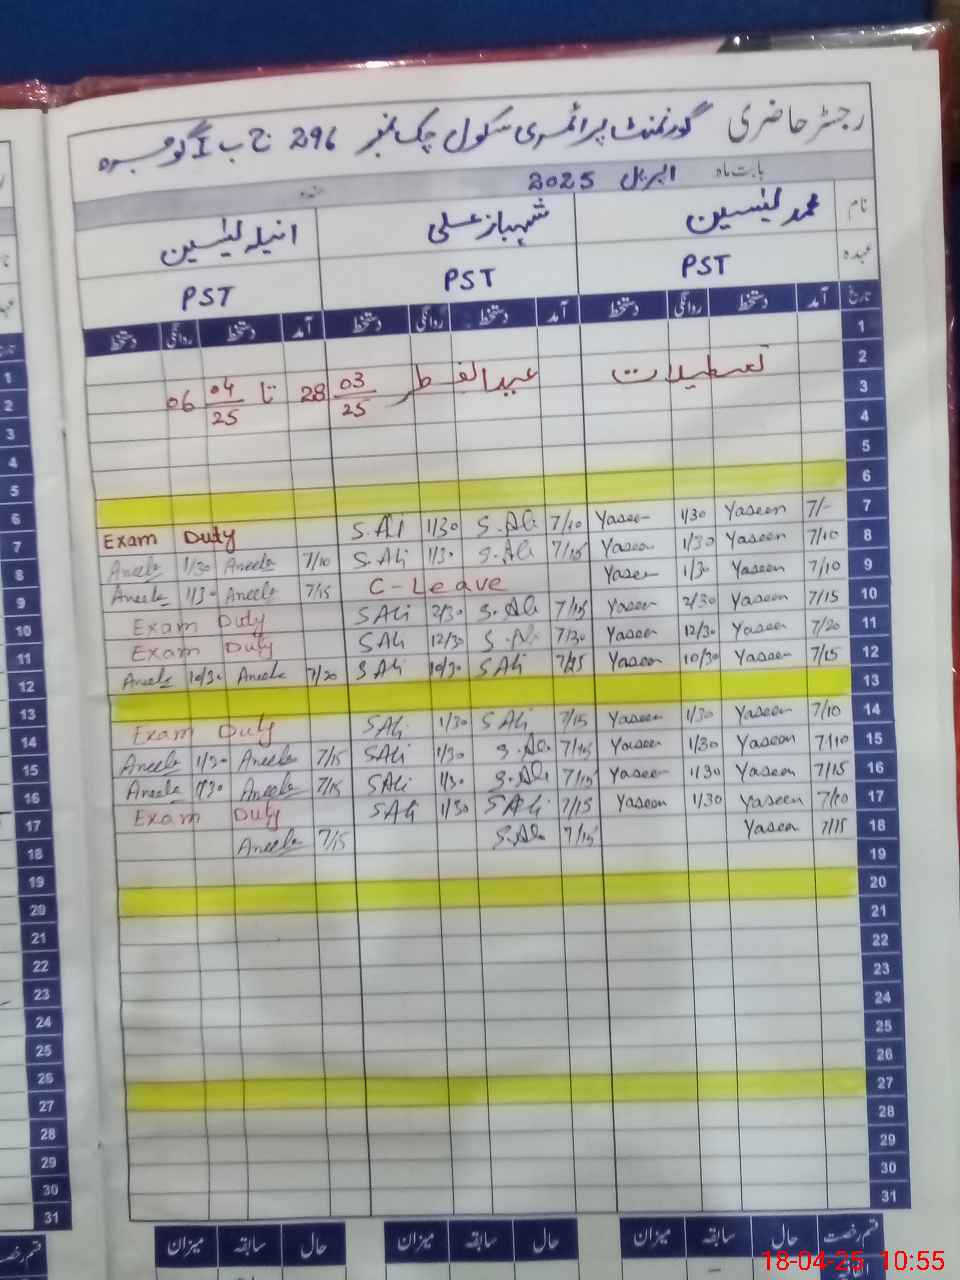 رجسٹر حاضری گورنمنٹ پرائمری سکول چک نمبر 296 ج ب I گوجرہ
بابت ماہ اپریل 2025
نام محمد یٰسین شہباز علی انیلہ یٰسین
عہدہ PST PST PST
تاریخ آمد دستخط روانگی دستخط آمد دستخط روانگی دستخط آمد دستخط روانگی دستخط
1
2
3 تعطیلات عیدالفطر 28 03/25 تا 06 04/25
4
5
6
7 7/- Yaseen 1/30 Yaseen 7/10 S.Ali 1/30 S.Ali Exam Duty
8 7/10 Yaseen 1/30 Yaseen 7/15 S.Ali 1/30 S.Ali 7/10 Aneela 1/30 Aneela
9 7/10 Yaseen 1/30 Yaseen C-Leave 7/15 Aneela 1/30 Aneela
10 7/15 Yaseen 2/30 Yaseen 7/15 S.Ali 2/30 S Ali Exam Duty
11 7/20 Yaseen 12/30 Yaseen 7/30 S.Ali 12/30 S Ali Exam Duty
12 7/15 Yaseen 10/30 Yaseen S Ali 10/30 S Ali 7/20 Aneela 10/30 Aneela
13
14 7/10 Yaseen 1/30 Yaseen 7/15 S Ali 1/30 S Ali Exam Duty
15 7/10 Yaseen 1/30 Yaseen 7/15 S.Ali 1/30 S Ali 7/15 Aneela 1/30 Aneela
16 7/15 Yaseen 1/30 Yaseen 7/15 S.Ali 1/30 S Ali 7/15 Aneela 1/30 Aneela
17 Yaseen 1/30 Yaseen 7/15 S Ali 1/30 S Ali Exam Duty
18 7/15 Yaseen 7/15 S.Ali 7/15 Aneela
19
20
21
22
23
24
25
26
27
28
29
30
31
قسم رخصت حال سابقہ میزان حال سابقہ میزان حال سابقہ میزان
18-04-25 10:55